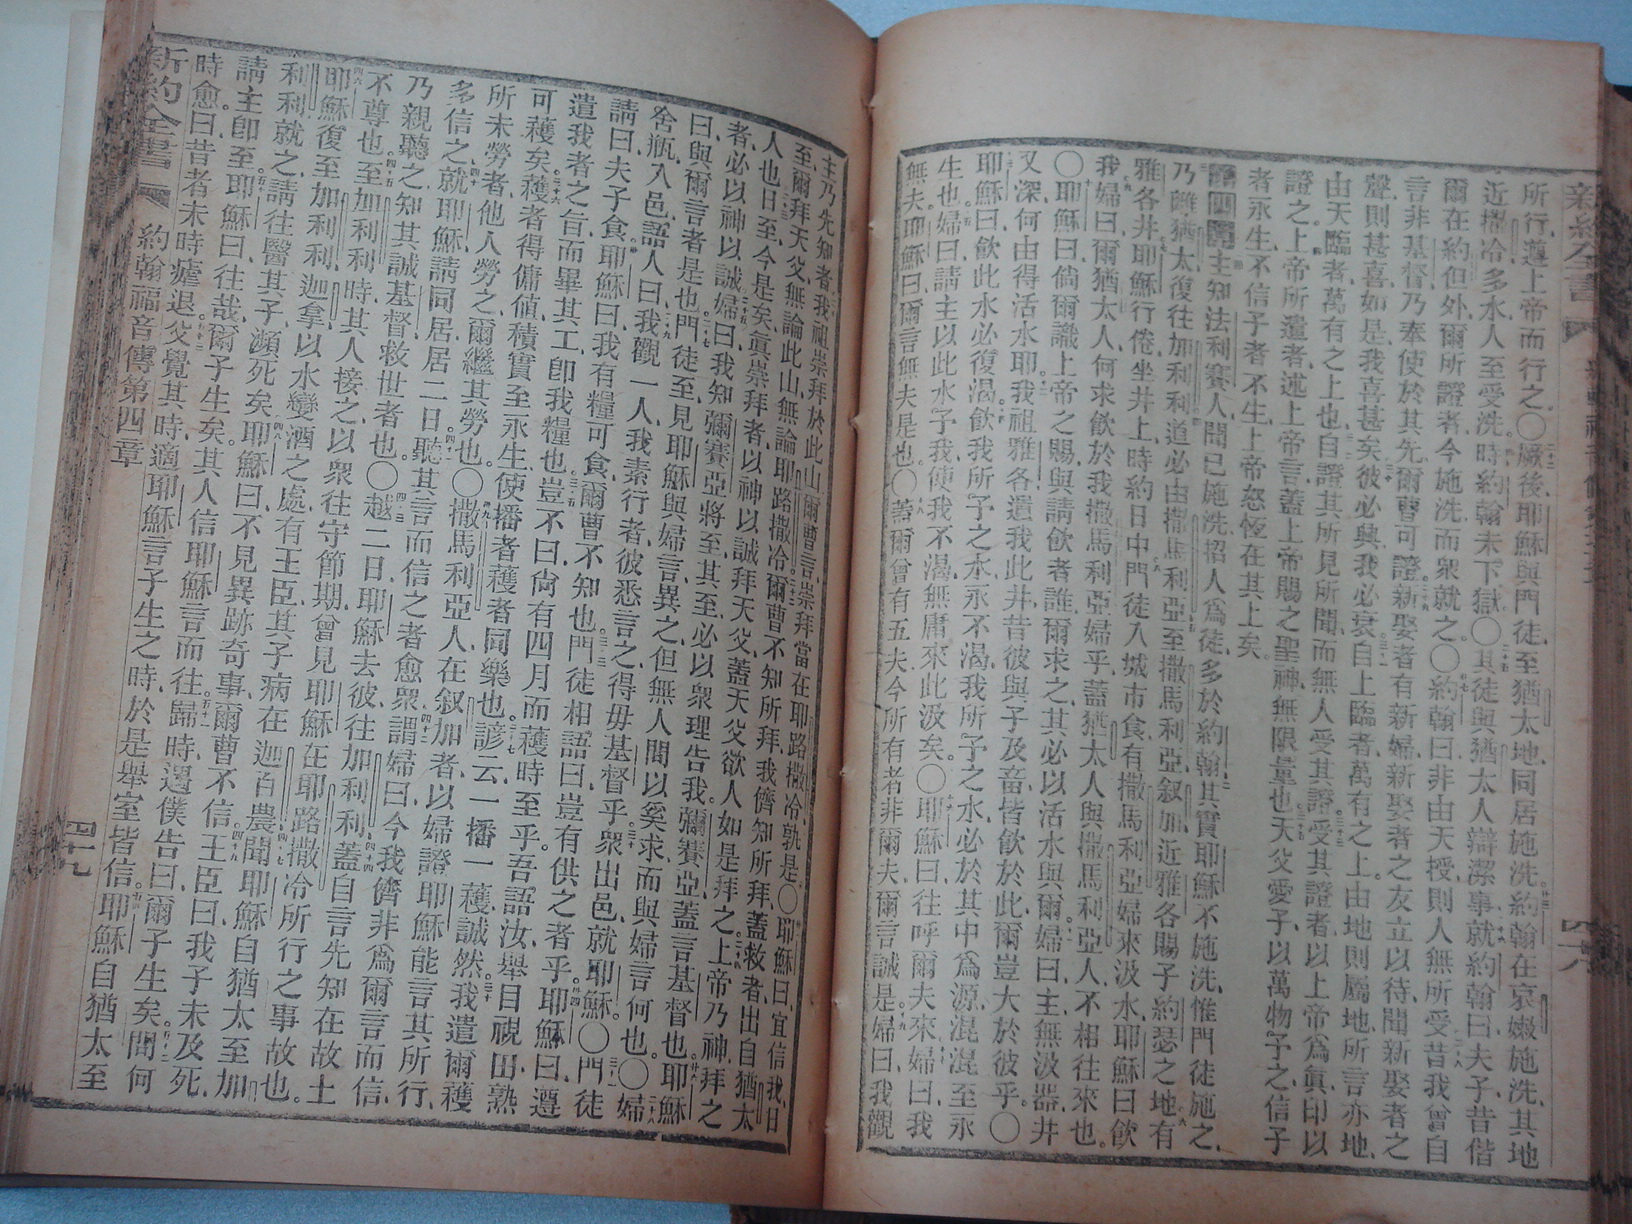 新約全書
所行遵上帝而行之○厥後耶穌與門徒至猶太地同居施洗約翰在哀嫩施洗其地
近撒冷多水人至受洗時約翰未下獄○其徒與猶太人辯潔事就約翰曰夫子昔偕
爾在約但外爾所證者今施洗而衆就之○約翰曰非由天授則人無所受昔我曾自
言非基督乃奉使於其先爾曹可證新娶者有新婦新娶者之友立以待聞新娶者之
聲則甚喜如是我喜甚矣彼必興我必衰自上臨者萬有之上由地則屬地所言亦地
由天臨者萬有之上也自證其所見所聞而無人受其證受其證者以上帝爲眞印以
證之上帝所遣者述上帝言蓋上帝賜之聖神無限量也天父愛子以萬物予之信子
者永生不信子者不生上帝怒恆在其上矣
第四章主知法利賽人聞已施洗招人爲徒多於約翰其實耶穌不施洗惟門徒施之
乃離猶太復往加利利道必由撒馬利亞至撒馬利亞叙加近雅各賜子約瑟之地有
雅各井耶穌行倦坐井上時約日中門徒入城市食有撒馬利亞婦來汲水耶穌曰飲
我婦曰爾猶太人何求飲於我撒馬利亞婦乎蓋猶太人與撒馬利亞人不相往來也
○耶穌曰倘爾識上帝之賜與請飲者誰爾求之其必以活水與爾婦曰主無汲器井
又深何由得活水耶我祖雅各遺我此井昔彼與子及畜皆飲於此爾豈大於彼乎○
耶穌曰飲此水必復渴飲我所予之水永不渴我所予之水必於其中爲源混混至永
生也婦曰請主以此水予我使我不渴無庸來此汲矣○耶穌曰往呼爾夫來婦曰我
無夫耶穌曰爾言無夫是也○蓋爾曾有五夫今所有者非爾夫爾言誠是婦曰我觀
四十八
主乃先知者我祖崇拜於此山爾曹言崇拜當在耶路撒冷孰是○耶穌曰宜信我日
至爾拜天父無論此山無論耶路撒冷爾曹不知所拜我儕知所拜蓋救者出自猶太
人也日至今是矣眞崇拜者以神以誠拜天父蓋天父欲人如是拜之上帝乃神拜之
者必以神以誠婦曰我知彌賽亞將至其至必以衆理告我彌賽亞蓋言基督也耶穌
曰與爾言者是也門徒至見耶穌與婦言異之但無人問以奚求而與婦言何也○婦
舍瓶入邑語人曰我觀一人我素行者彼悉言之得毋基督乎衆出邑就耶穌○門徒
請曰夫子食耶穌曰我有糧可食爾曹不知也門徒相語曰豈有供之者乎耶穌曰遵
遣我者之旨而畢其工卽我糧也豈不曰尙有四月而穫時至乎吾語汝舉目視田熟
可穫矣穫者得傭値積實至永生使播者穫者同樂也諺云一播一穫誠然我遣爾穫
所未勞者他人勞之爾繼其勞也○撒馬利亞人在叙加者以婦證耶穌能言其所行
多信之就耶穌請同居居二日聽其言而信之者愈衆謂婦曰今我儕非爲爾言而信
乃親聽之知其誠基督救世者也○越二日耶穌去彼往加利利蓋自言先知在故土
不尊也至加利利時其人接之以衆往守節期曾見耶穌在耶路撒冷所行之事故也
耶穌復至加利利迦拿以水變酒之處有王臣其子病在迦百農聞耶穌自猶太至加
利利就之請往醫其子瀕死矣耶穌曰不見異跡奇事爾曹不信王臣曰我子未及死
請主卽至耶穌曰往哉爾子生矣其人信耶穌言而往歸時遇僕告曰爾子生矣問何
時愈曰昔者未時瘧退父覺其時適耶穌言子生之時於是舉室皆信耶穌自猶太至
新約全書
約翰福音傳第四章
四十九